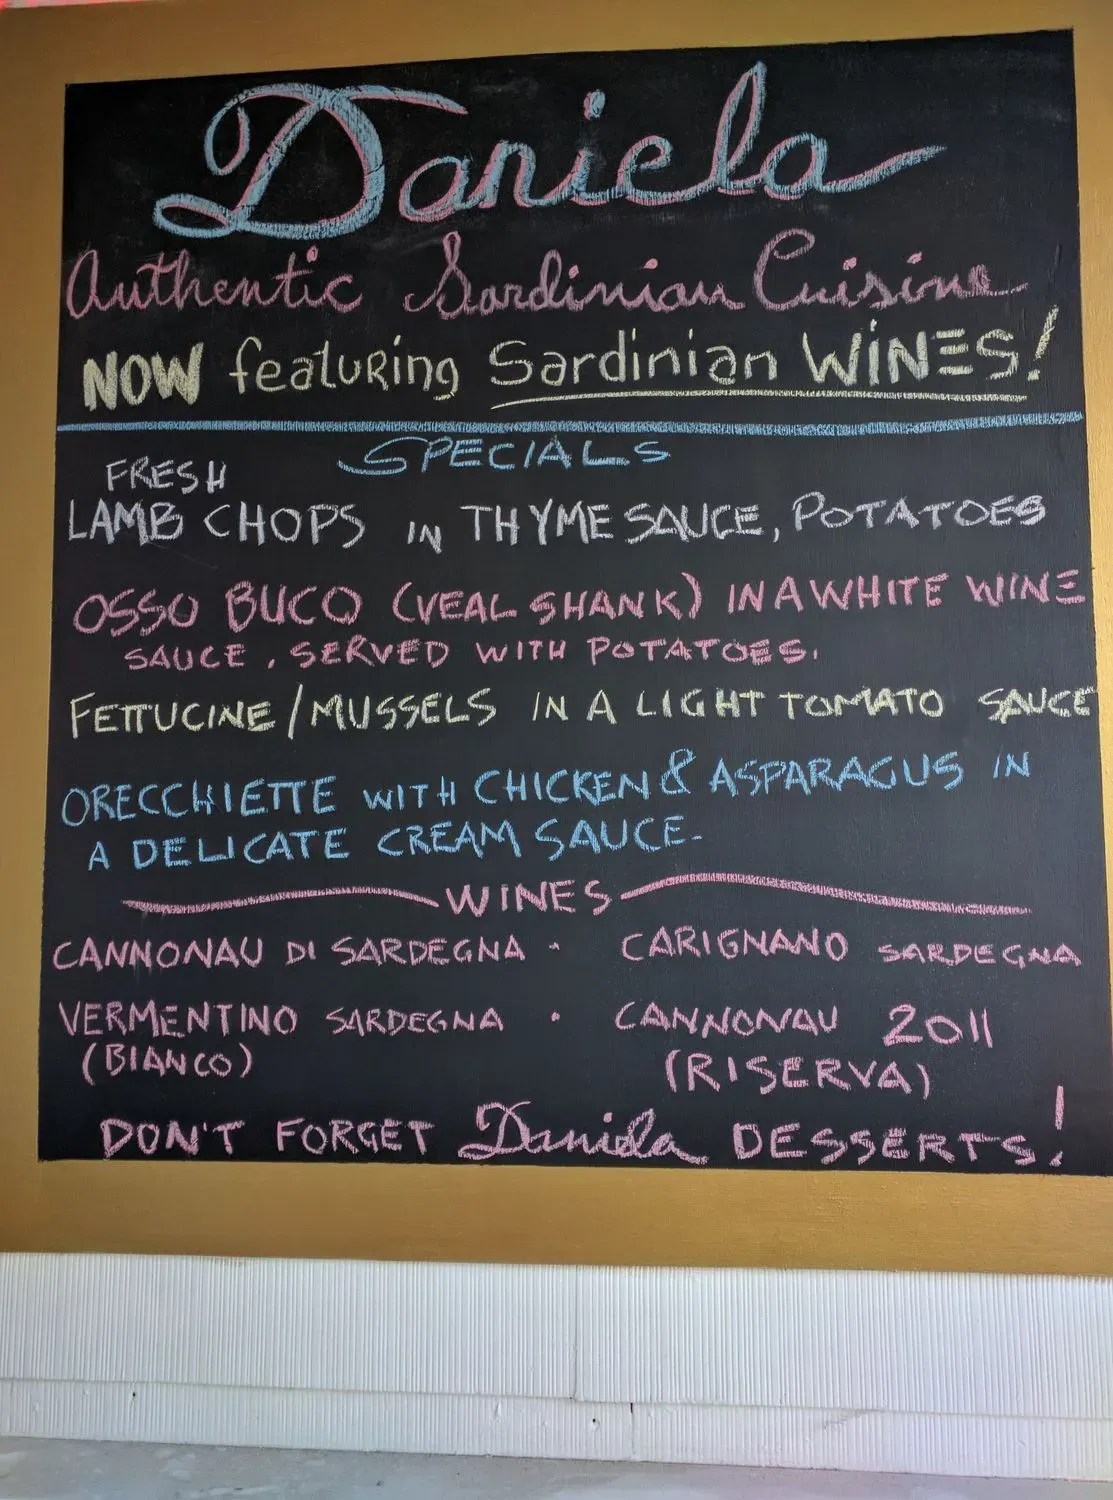 Daniela
Authentic Sardinian Cuisine
NOW featuring Sardinian WINES!
SPECIALS
FRESH
LAMB CHOPS IN THYME SAUCE, POTATOES
OSSO BUCO (VEAL SHANK) IN A WHITE WINE
SAUCE, SERVED WITH POTATOES.
FETTUCINE/MUSSELS IN A LIGHT TOMATO SAUCE
ORECCHIETTE WITH CHICKEN & ASPARAGUS IN
A DELICATE CREAM SAUCE-
WINES
CANNONAU DI SARDEGNA · CARIGNANO SARDEGNA
VERMENTINO SARDEGNA · CANNONAU 2011
(BIANCO) (RISERVA)
DON'T FORGET Daniela DESSERTS!